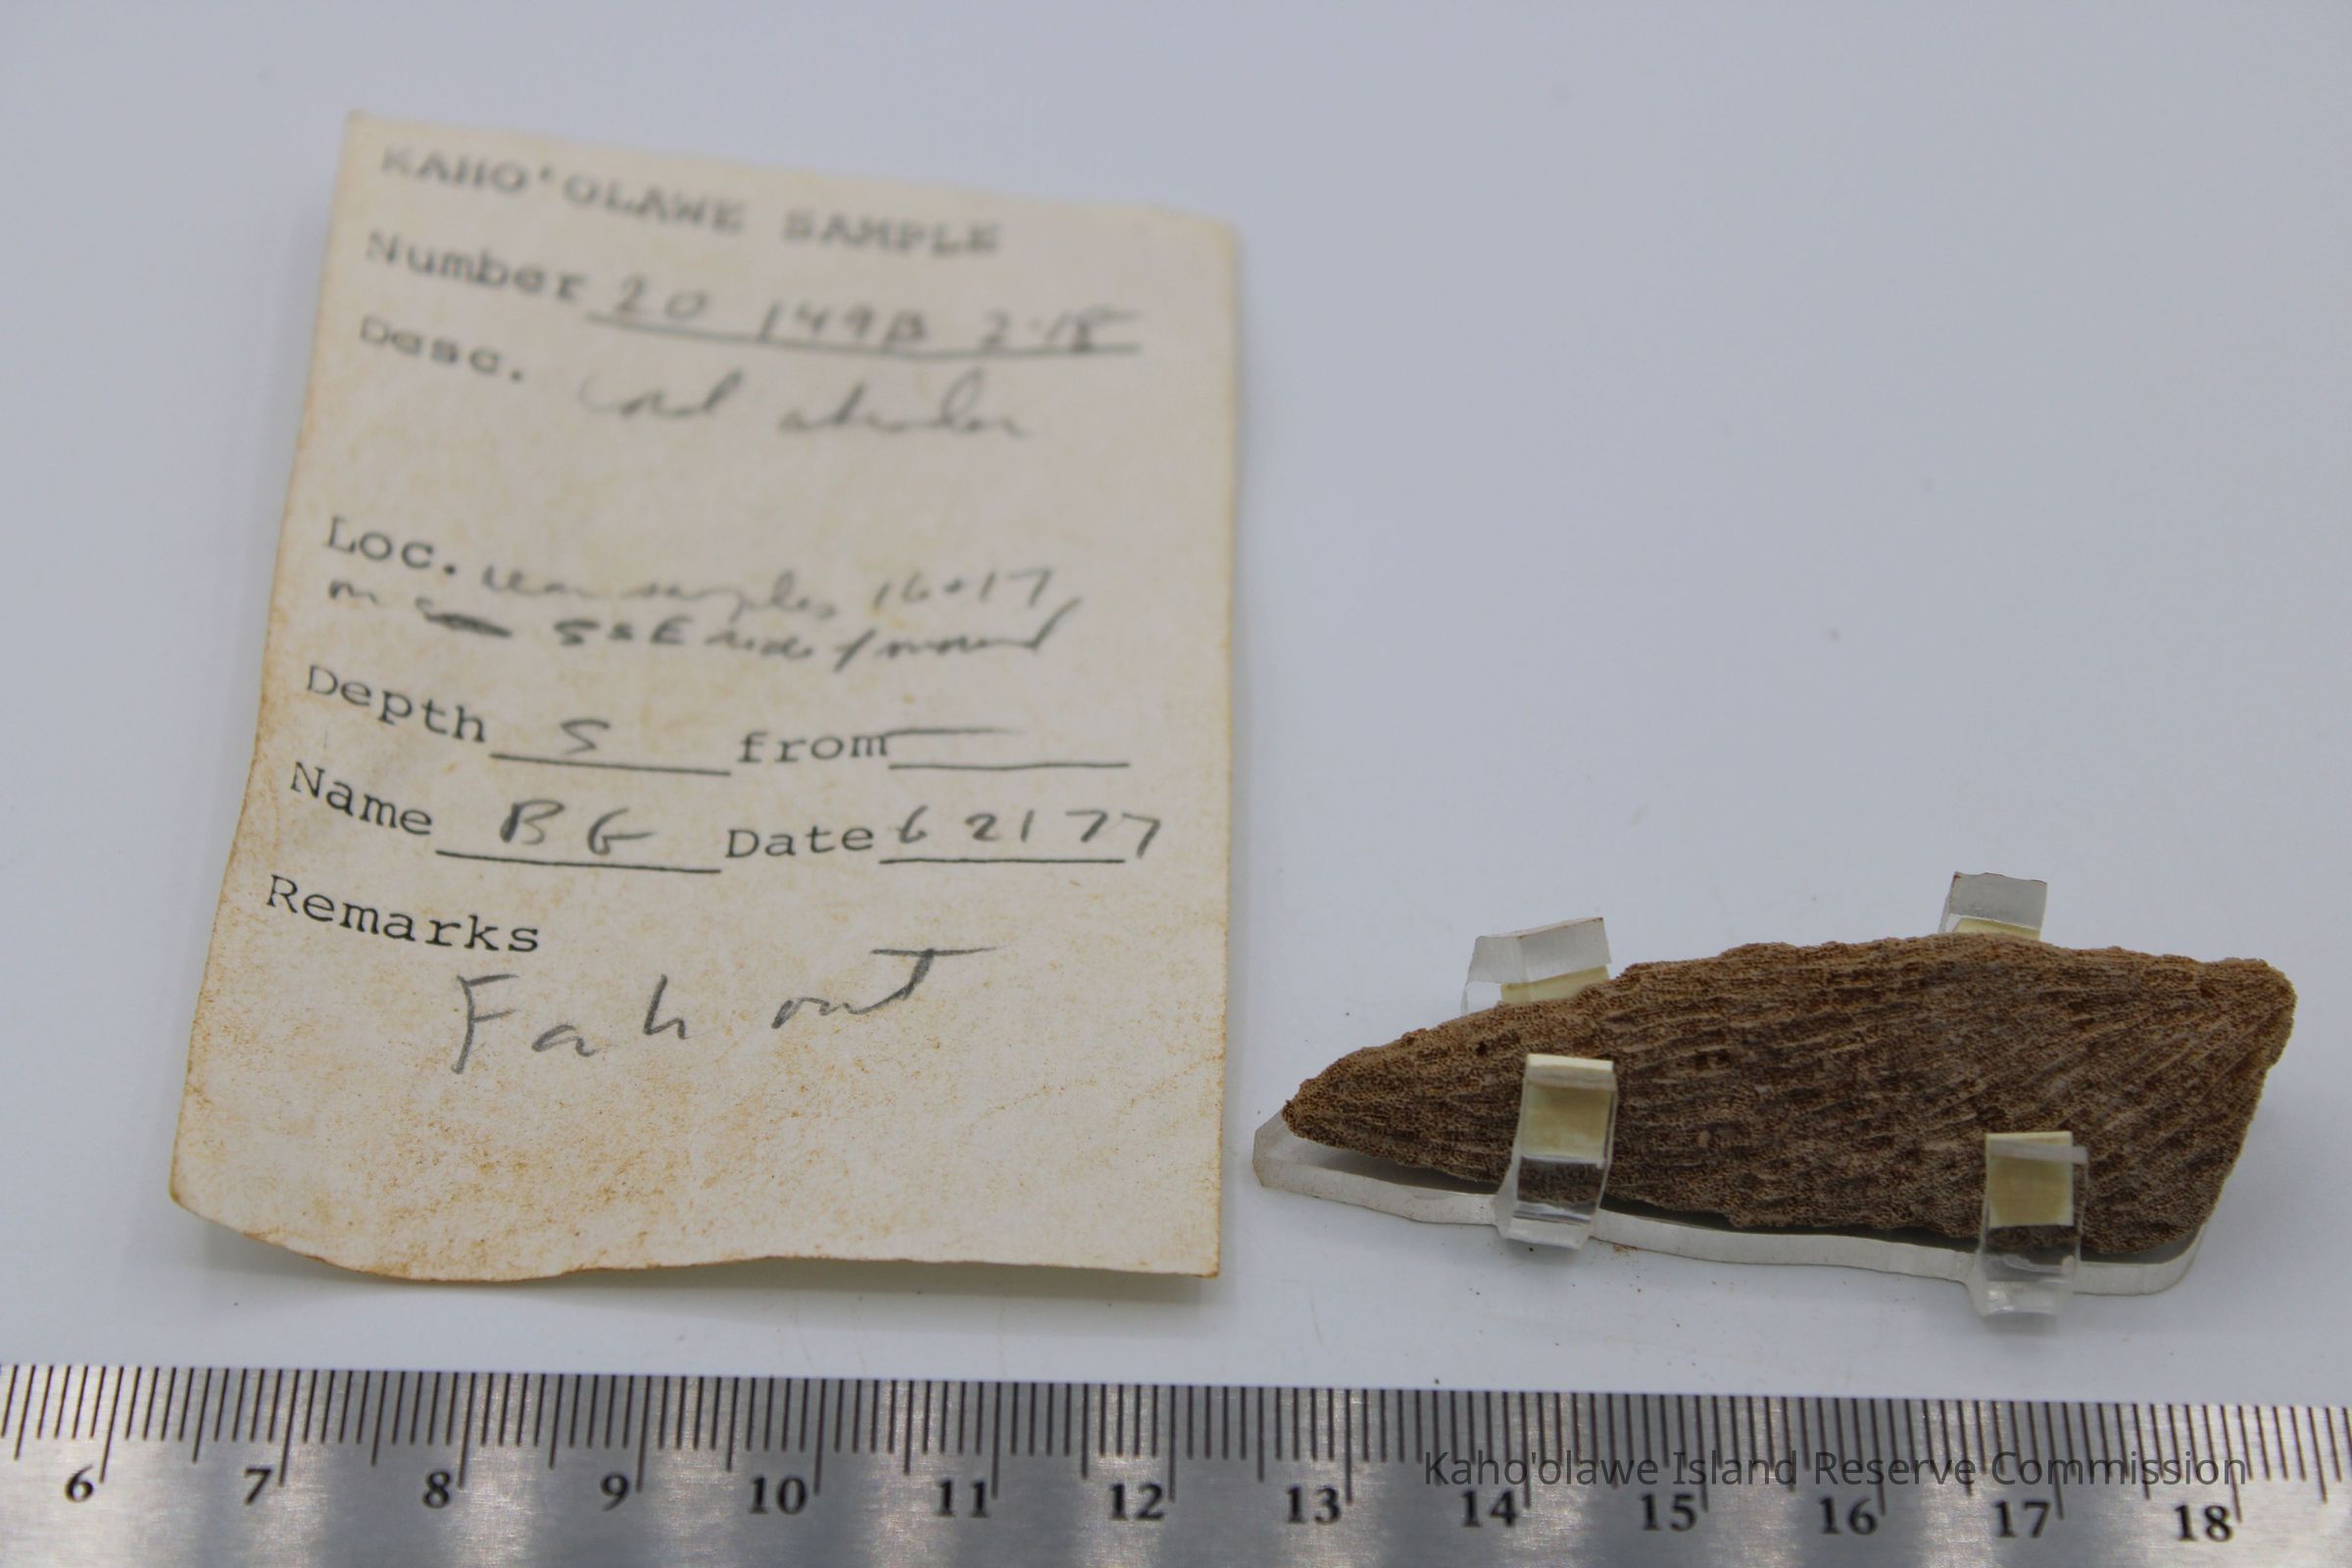 KAHO'OLAWE SAMPLE
Number 20 149B 2-18
Desc. coral abrader
Loc. near samples 16+17
on S&E side of mound
Depth S from —
Name BG Date 6 21 77
Remarks
Fah out
6 7 8 9 10 11 12 13 14 15 16 17 18
Kaho'olawe Island Reserve Commission